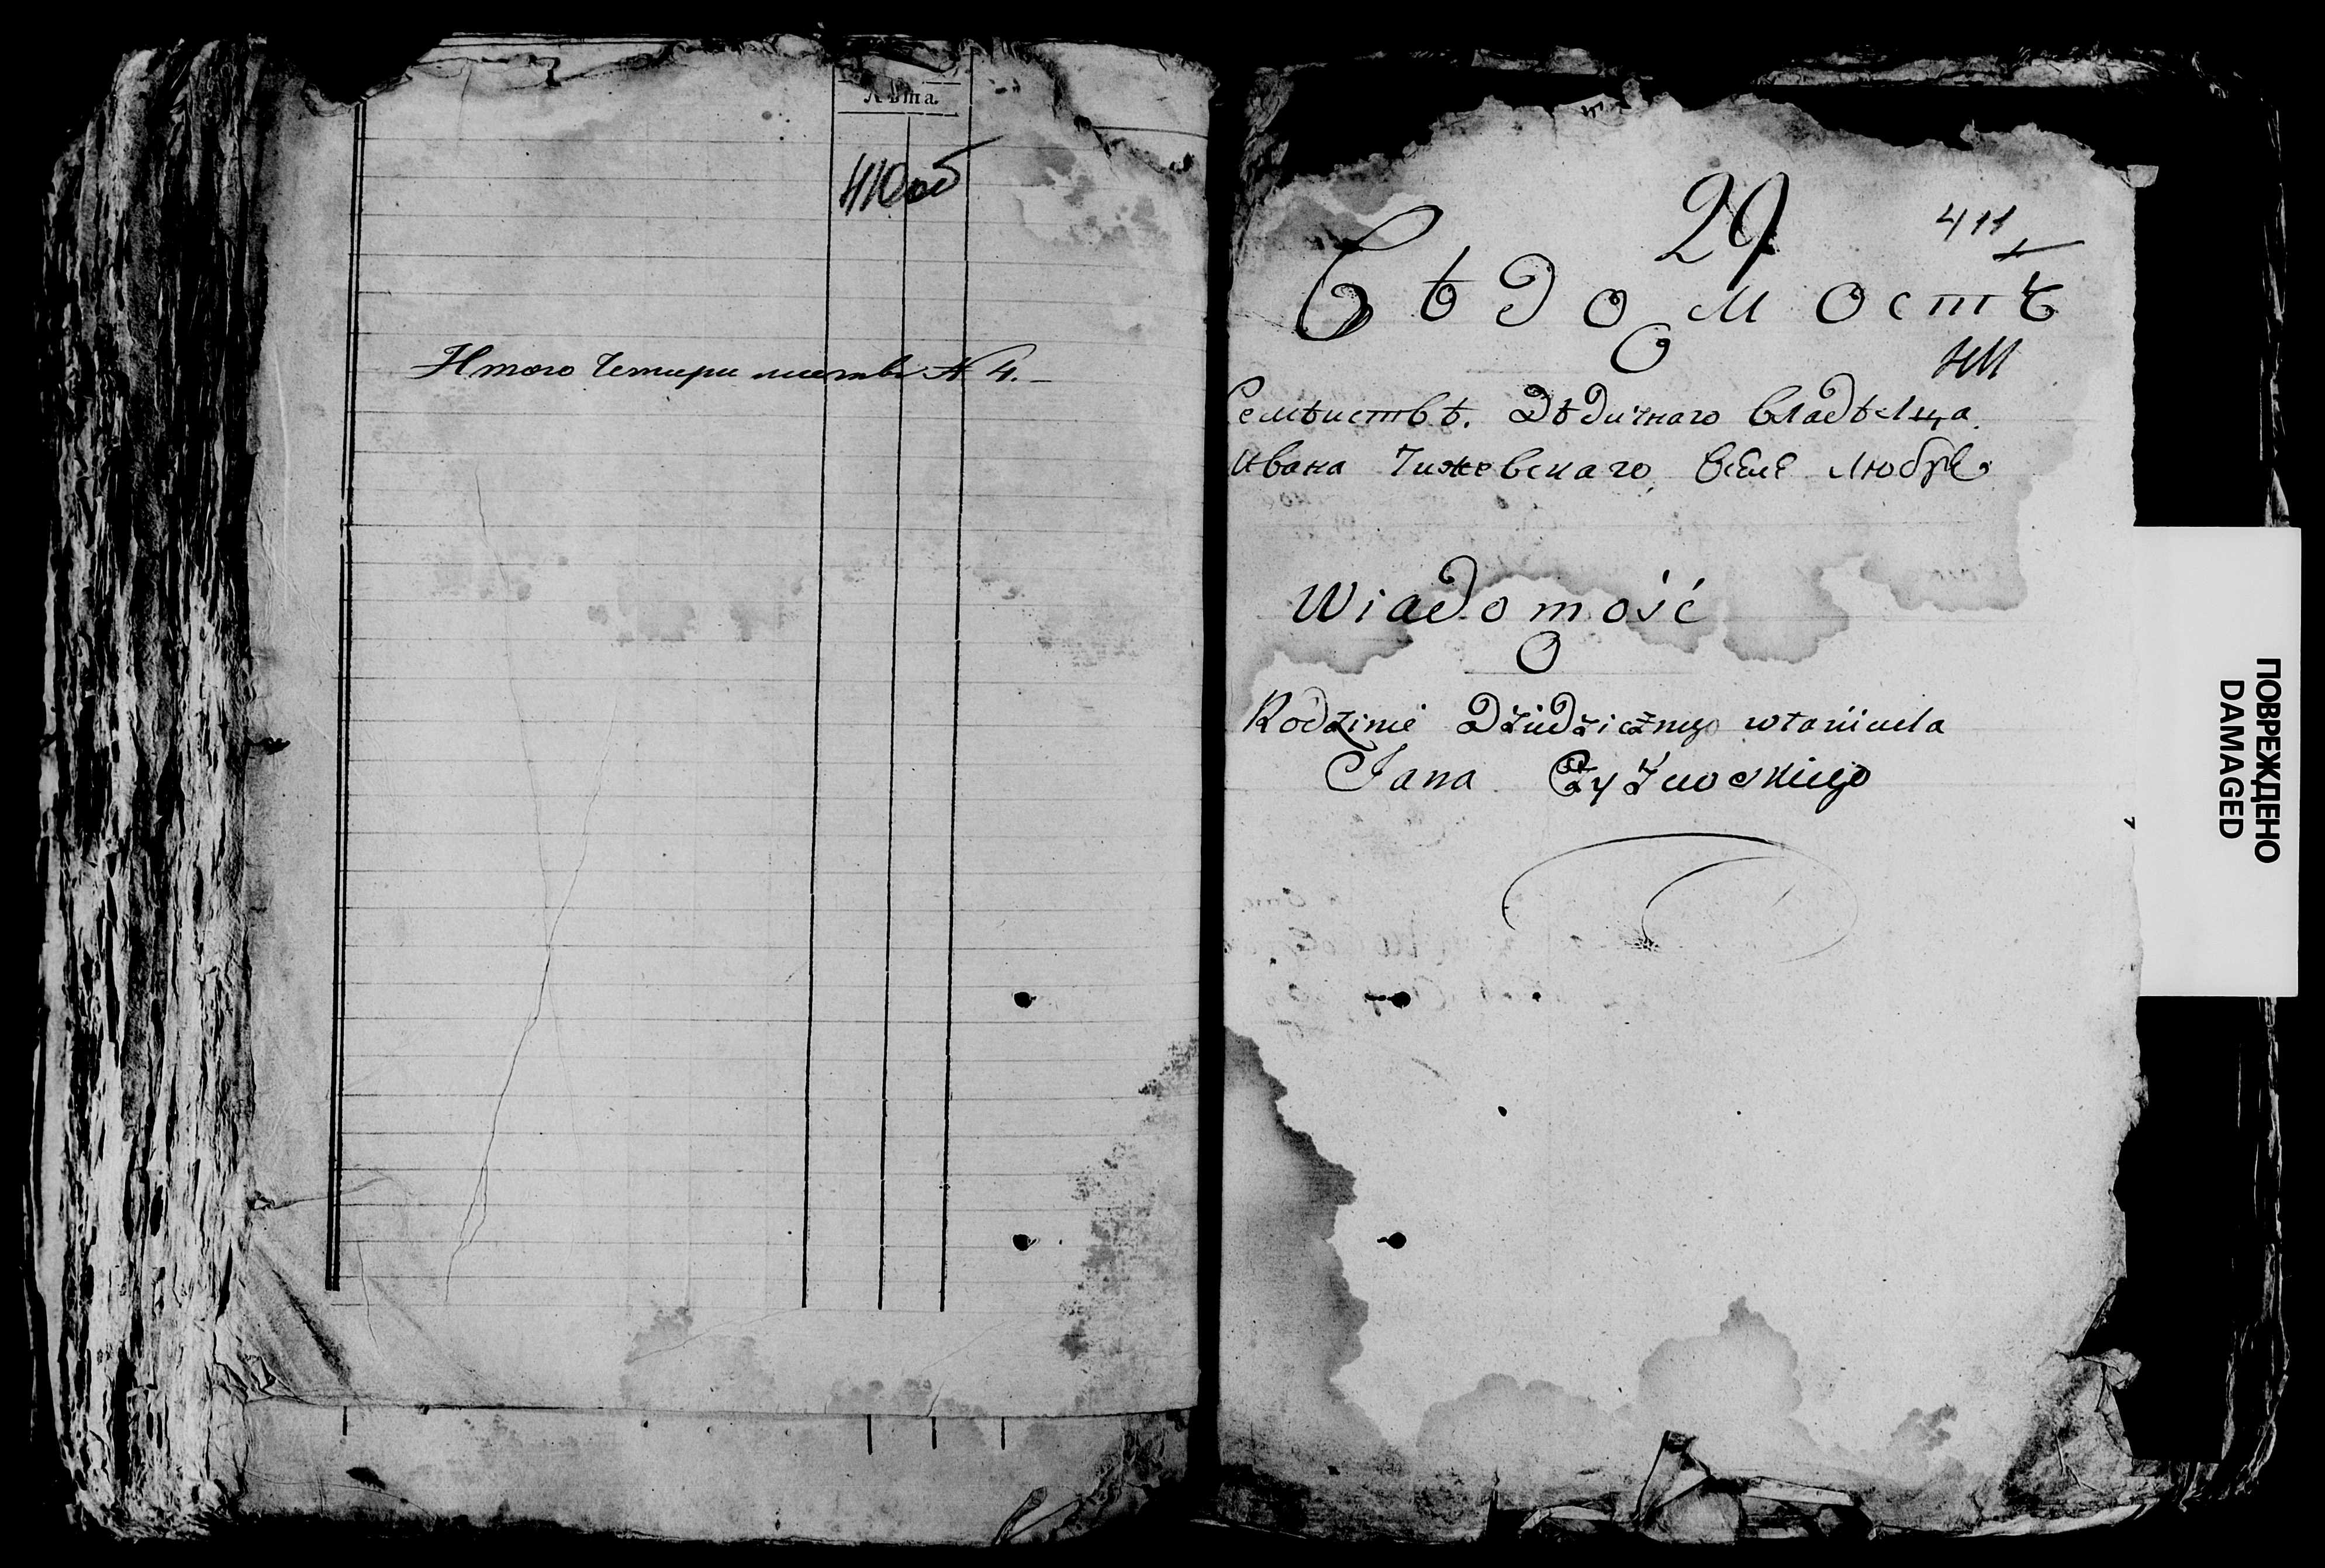 Лѣта.
410 об
Итого четири листы N 4. –
29
411
Вѣдомостъ
О
НИ
Семѣиствѣ. Дѣдичнаго владѣлца.
Ивана Чижевскаго, вселе Любрѣ
Wiadomość
O
Rodzinie Dziedzicznego własciciela
Jana Czyżewskiego
ПОВРЕЖДЕНО
DAMAGED